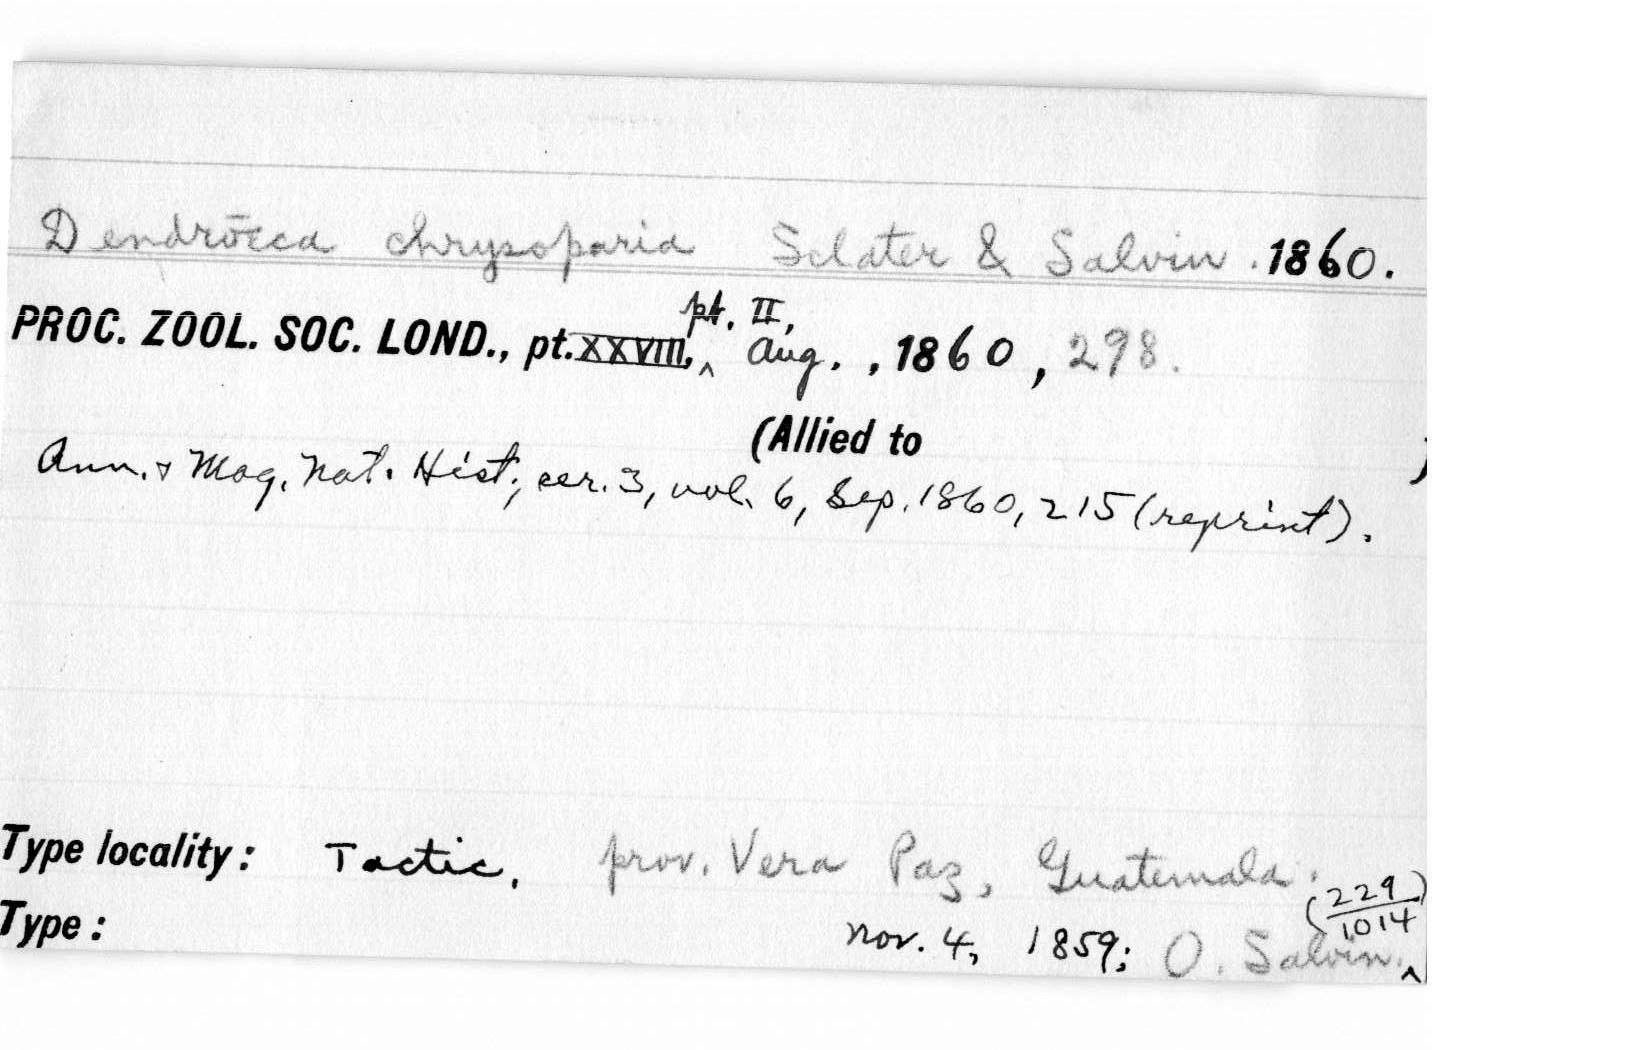 Dendrœca chrysoparia Sclater & Salvin. 1860.
pt. II,
PROC. ZOOL. SOC. LOND., pt. XXVIII, ^ Aug. , 1860, 298.
(Allied to )
Ann. & Mag. Nat. Hist., ser. 3, vol. 6, Sep. 1860, 215 (reprint).
Type locality: Tactic, prov. Vera Paz, Guatemala.
(229/1014)
Type: Nov. 4, 1859; O. Salvin. ^